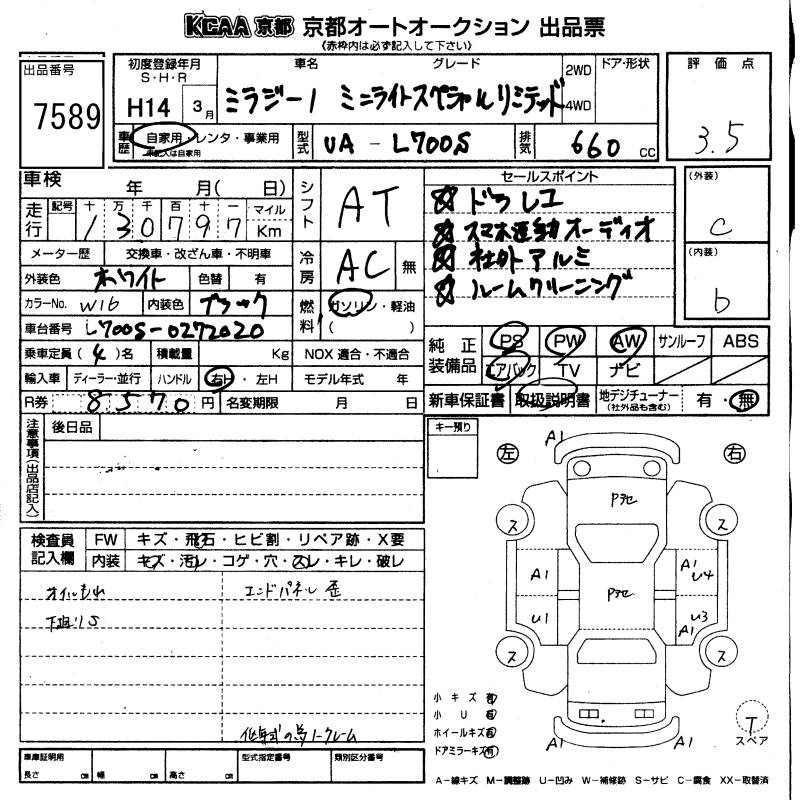 KCAA 京都 京都オートオークション 出品票
《赤枠内は必ず記入して下さい》
出品番号
7589
初度登録年月
S・H・R
H14 3月
車名 グレード
ミラジーノ ミニライトスペシャルリミテッド
2WD
4WD
ドア・形状
評価点
3.5
車歴 自家用・レンタ・事業用
未記入は自家用
型式 UA-L700S
排気 660 cc
車検 年 月( 日)
走行 記号 十 万 千 百 十 一 マイル
130797 Km
メーター歴 交換車・改ざん車・不明車
外装色 ホワイト 色替 有
カラーNo. W16 内装色 ブラック
車台番号 L700S-0272020
乗車定員 (4)名 積載量 Kg NOX 適合・不適合
輸入車 ディーラー・並行 ハンドル 右H・左H モデル年式 年
R券 8570円 名変期限 月 日
シフト AT
冷房 AC 無
燃料 ガソリン・軽油
( )
セールスポイント
☆ ドラレコ
☆ スマホ連動オーディオ
☆ 社外アルミ
☆ ルームクリーニング
(外装)
C
(内装)
b
純正装備品 PS PW AW サンルーフ ABS
エアバック TV ナビ
新車保証書 取扱説明書 地デジチューナー
(社外品も含む)
有・無
注意事項(出品店記入)
後日品
キー預り
左 右
検査員記入欄
FW キズ・飛石・ヒビ割・リペア跡・X要
内装 キズ・汚レ・コゲ・穴・スレ・キレ・破レ
オイルもれ
下廻りS
エンドパネル歪
低年式の為ノークレーム
A1
Pヲセ
ス ス
A1
A1 U4
Pヲセ
U1
U3
A1
ス ス
A1 A1
小キズ有
小U有
ホイールキズ有
ドアミラーキズ有
T
スペア
車庫証明用
長さ cm 幅 cm 高さ cm
型式指定番号
類別区分番号
A−線キズ M−調整跡 U−凹み W−補修跡 S−サビ C−腐食 XX−取替済